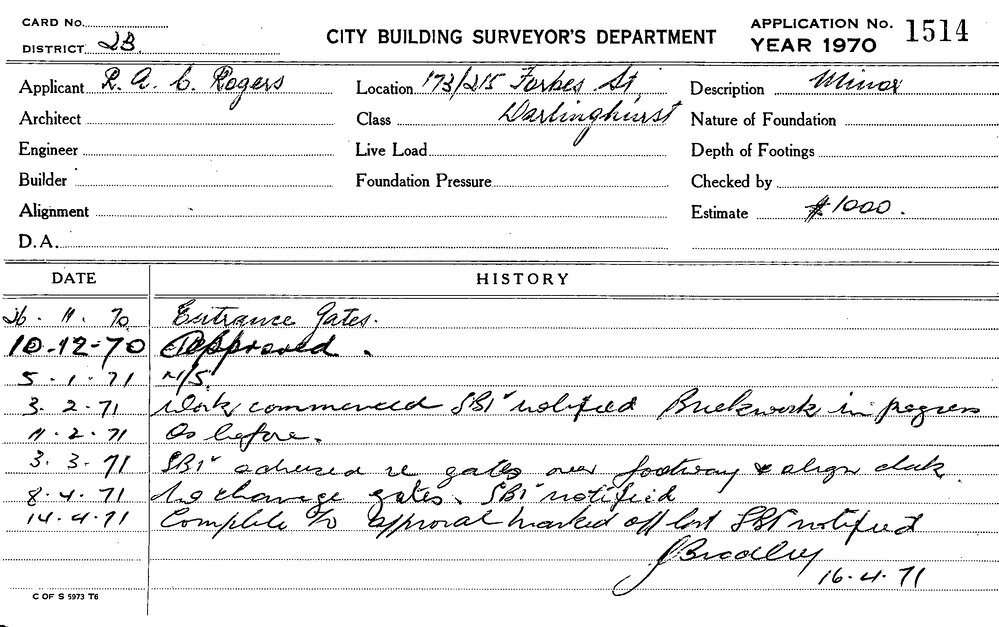 CARD No.
DISTRICT 2B.
CITY BUILDING SURVEYOR'S DEPARTMENT
APPLICATION No. 1514
YEAR 1970
Applicant R. A. C. Rogers
Location 173/215 Forbes St,
Description Minor
Architect
Class Darlinghurst
Nature of Foundation
Engineer
Live Load
Depth of Footings
Builder
Foundation Pressure
Checked by
Alignment
Estimate $1000.
D.A.
DATE HISTORY
26. 11. 70 Entrance Gates.
10-12-70 Approved.
5. 1. 71 N/S.
3. 2. 71 Work commenced SBI notified Brickwork in progress
11. 2. 71 As before.
3. 3. 71 SBI advised re gates over footway & align
8. 4. 71 No change gates. SBI notified
14. 4. 71 Complete to approval marked off SBI notified
J Bradley
16. 4. 71
C OF S 5973 T6